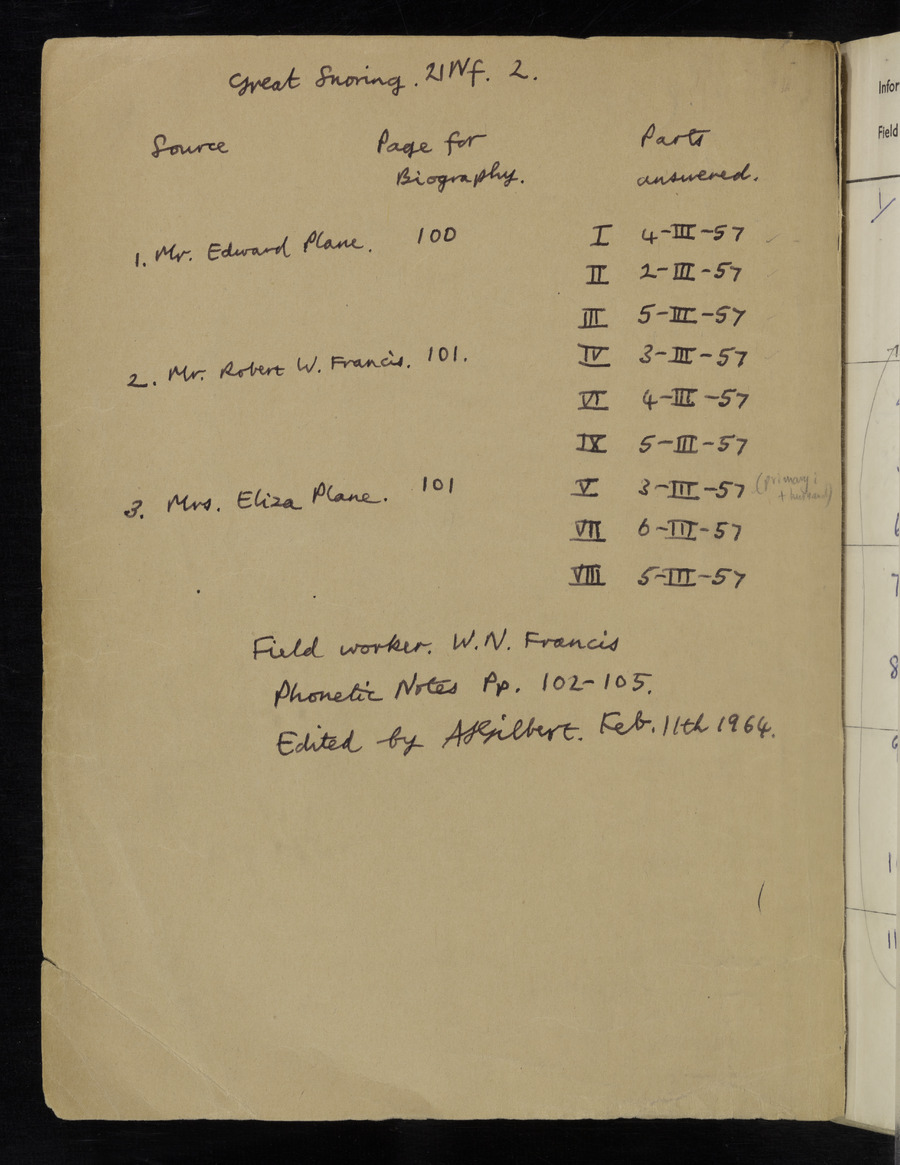 Great Snoring. 21Nf. 2.
Source Page for Parts
Biography. answered.
1. Mr. Edward Plane. 100 I 4-III-57
II 2-III-57
III 5-III-57
2. Mr. Robert W. Francis. 101. IV 3-III-57
VI 4-III-57
IX 5-III-57
3. Mrs. Eliza Plane. 101 V 3-III-57 (primary i
+ husband)
VII 6-III-57
VIII 5-III-57
Field worker. W.N. Francis
Phonetic Notes Pp. 102-105.
Edited by Gilbert. Feb. 11th 1964.
Infor
Field
6
7
8
11